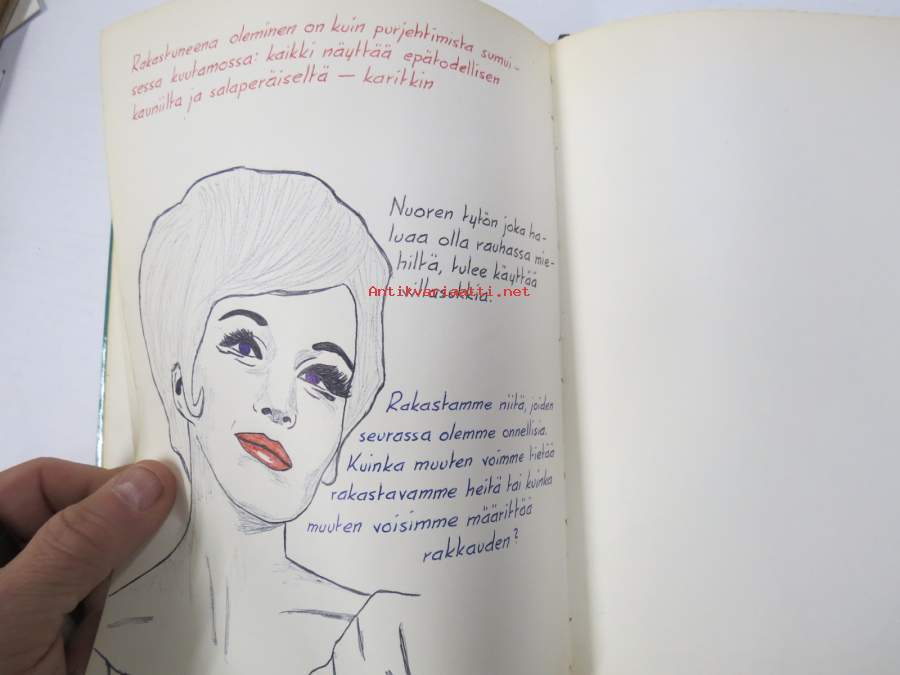 Rakastuneena oleminen on kuin purjehtimista sumui-
sessa kuutamossa: kaikki näyttää epätodellisen
kauniilta ja salaperäiseltä — karitkin
Nuoren tytön joka ha-
luaa olla rauhassa mie-
hiltä, tulee käyttää
villasukkia.
Antikvariaatti.net
Rakastamme niitä, joiden
seurassa olemme onnellisia.
Kuinka muuten voimme tietää
rakastavamme heitä tai kuinka
muuten voisimme määrittää
rakkauden?